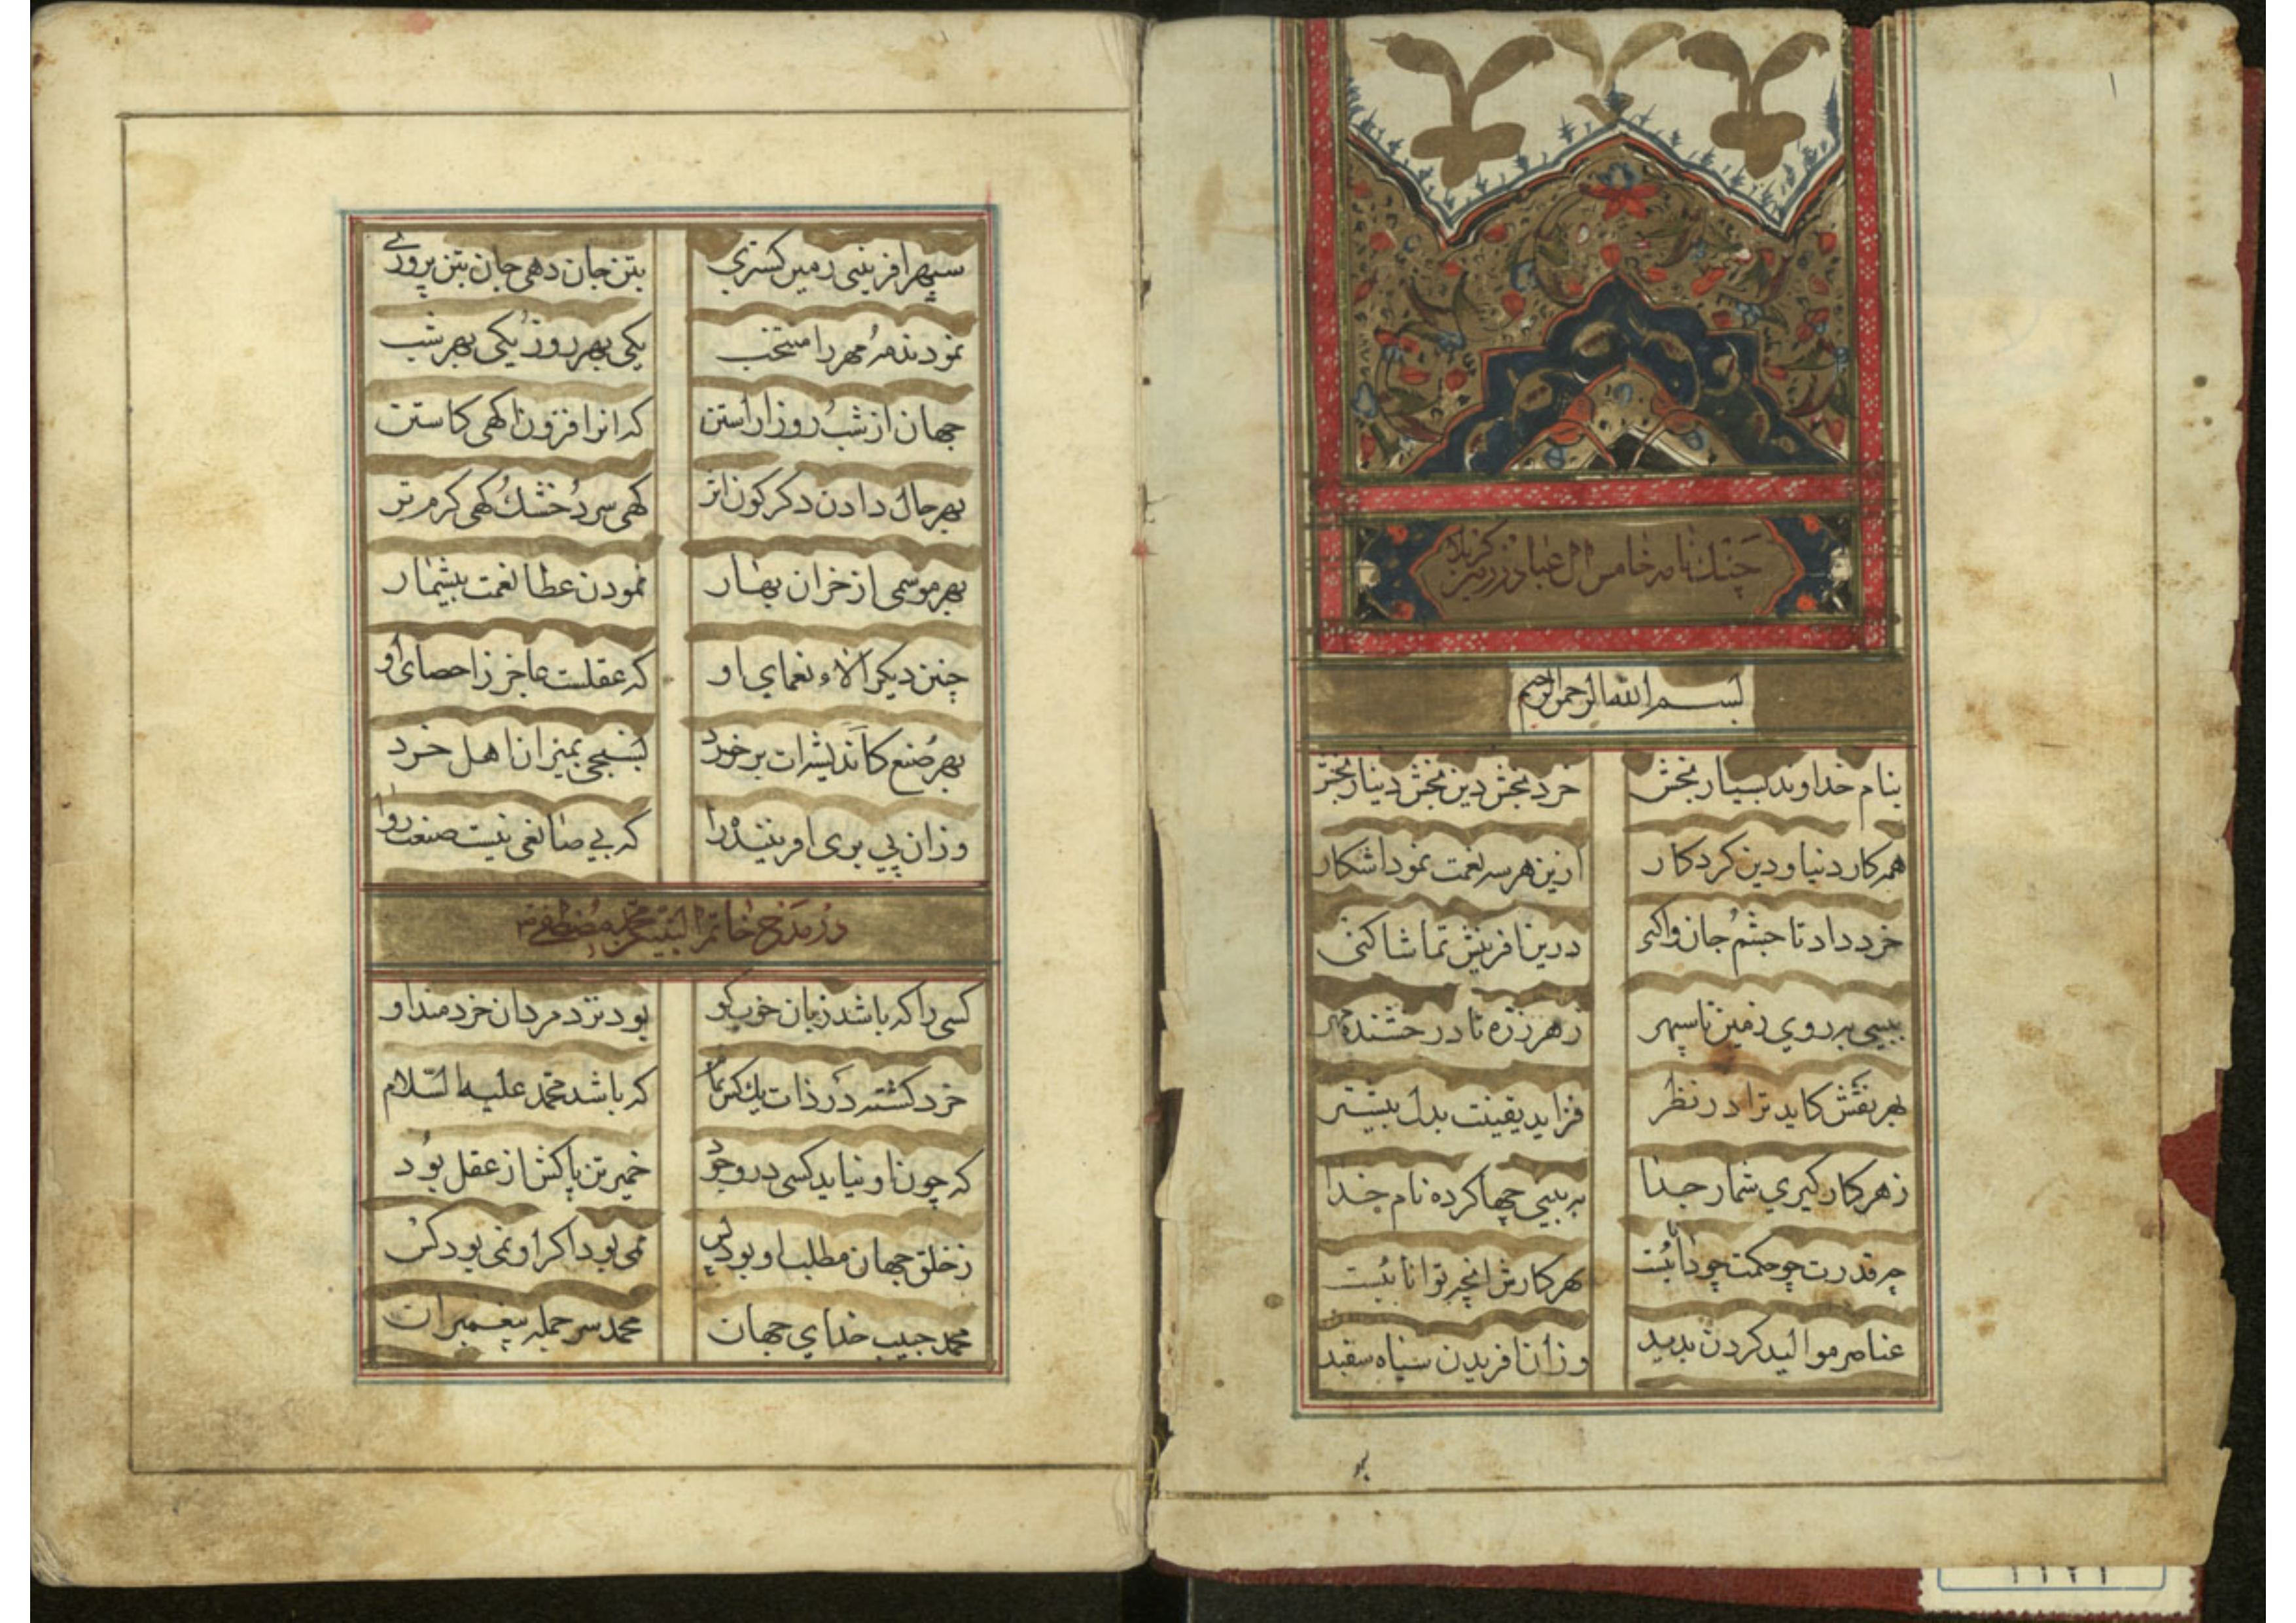 جنك نامه خامس ال عبا در زمین کربلا
بسم الله الرحمن الرحیم
بنام خداوند بسیار بخش خرد بخش دین بخش دینار بخش
همه کار دنیا و دین کرد کار ازین هر سه نعمت نمود اشکار
خرد داد تا چشم جان واکنی درین افرینش تماشا کنی
ببینی بر روی زمین تا سپهر ز هر ذره تا درخشنده مهر
بهر نقش کاید ترا در نظر فزاید یقینت بدل بیشتر
ز هر کار کیری شمار جدا به بینی چها کرده نام خدا
چه قدرت چو حکمت چو دانست بهر کارش انچه توانانیست
عناصر موالید کردن بدید وزان افریدن سیاه سفید
سپهر افرینی زمین کستری بتن جان دهی جان بتن پروری
نمودند مه مهر را منتخب یکی بهر روز یکی بهر شب
جهان از شب روز اراستن که انرا فزون کهی کاستن
بهر حال دادن دکرکون اثر کهی سرد خشك کهی کرم تر
بهر موسمی از خزان بهار نمودن عطا نعمت بیشمار
چنین دیکر الاء و نعمای او که عقلست عاجز ز احصای او
بهر صنع کاندیشه ات بر خورد بسنجی بمیزان اهل خرد
وزان پی بری افریننده را که بی صانعی نیست صنعت روا
در مدح خاتم النبیین محمد مصطفی ص
کسی را که باشد زبان خوب کو بود نزد مردان خردمند او
خرد کشته در ذات یك کس تمام که باشد محمد علیه السلام
که چون او نیاید کسی در وجود خمیر تن پاکش از عقل بود
ز خلق جهان مطلب او بود بس نمی بود اکر او نمی بود کس
محمد حبیب خدای جهان محمد سر جمله پیغمبران